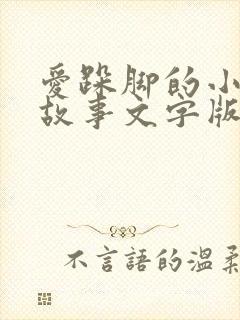 愛跺脚的小
故事文字版
不言語的温柔